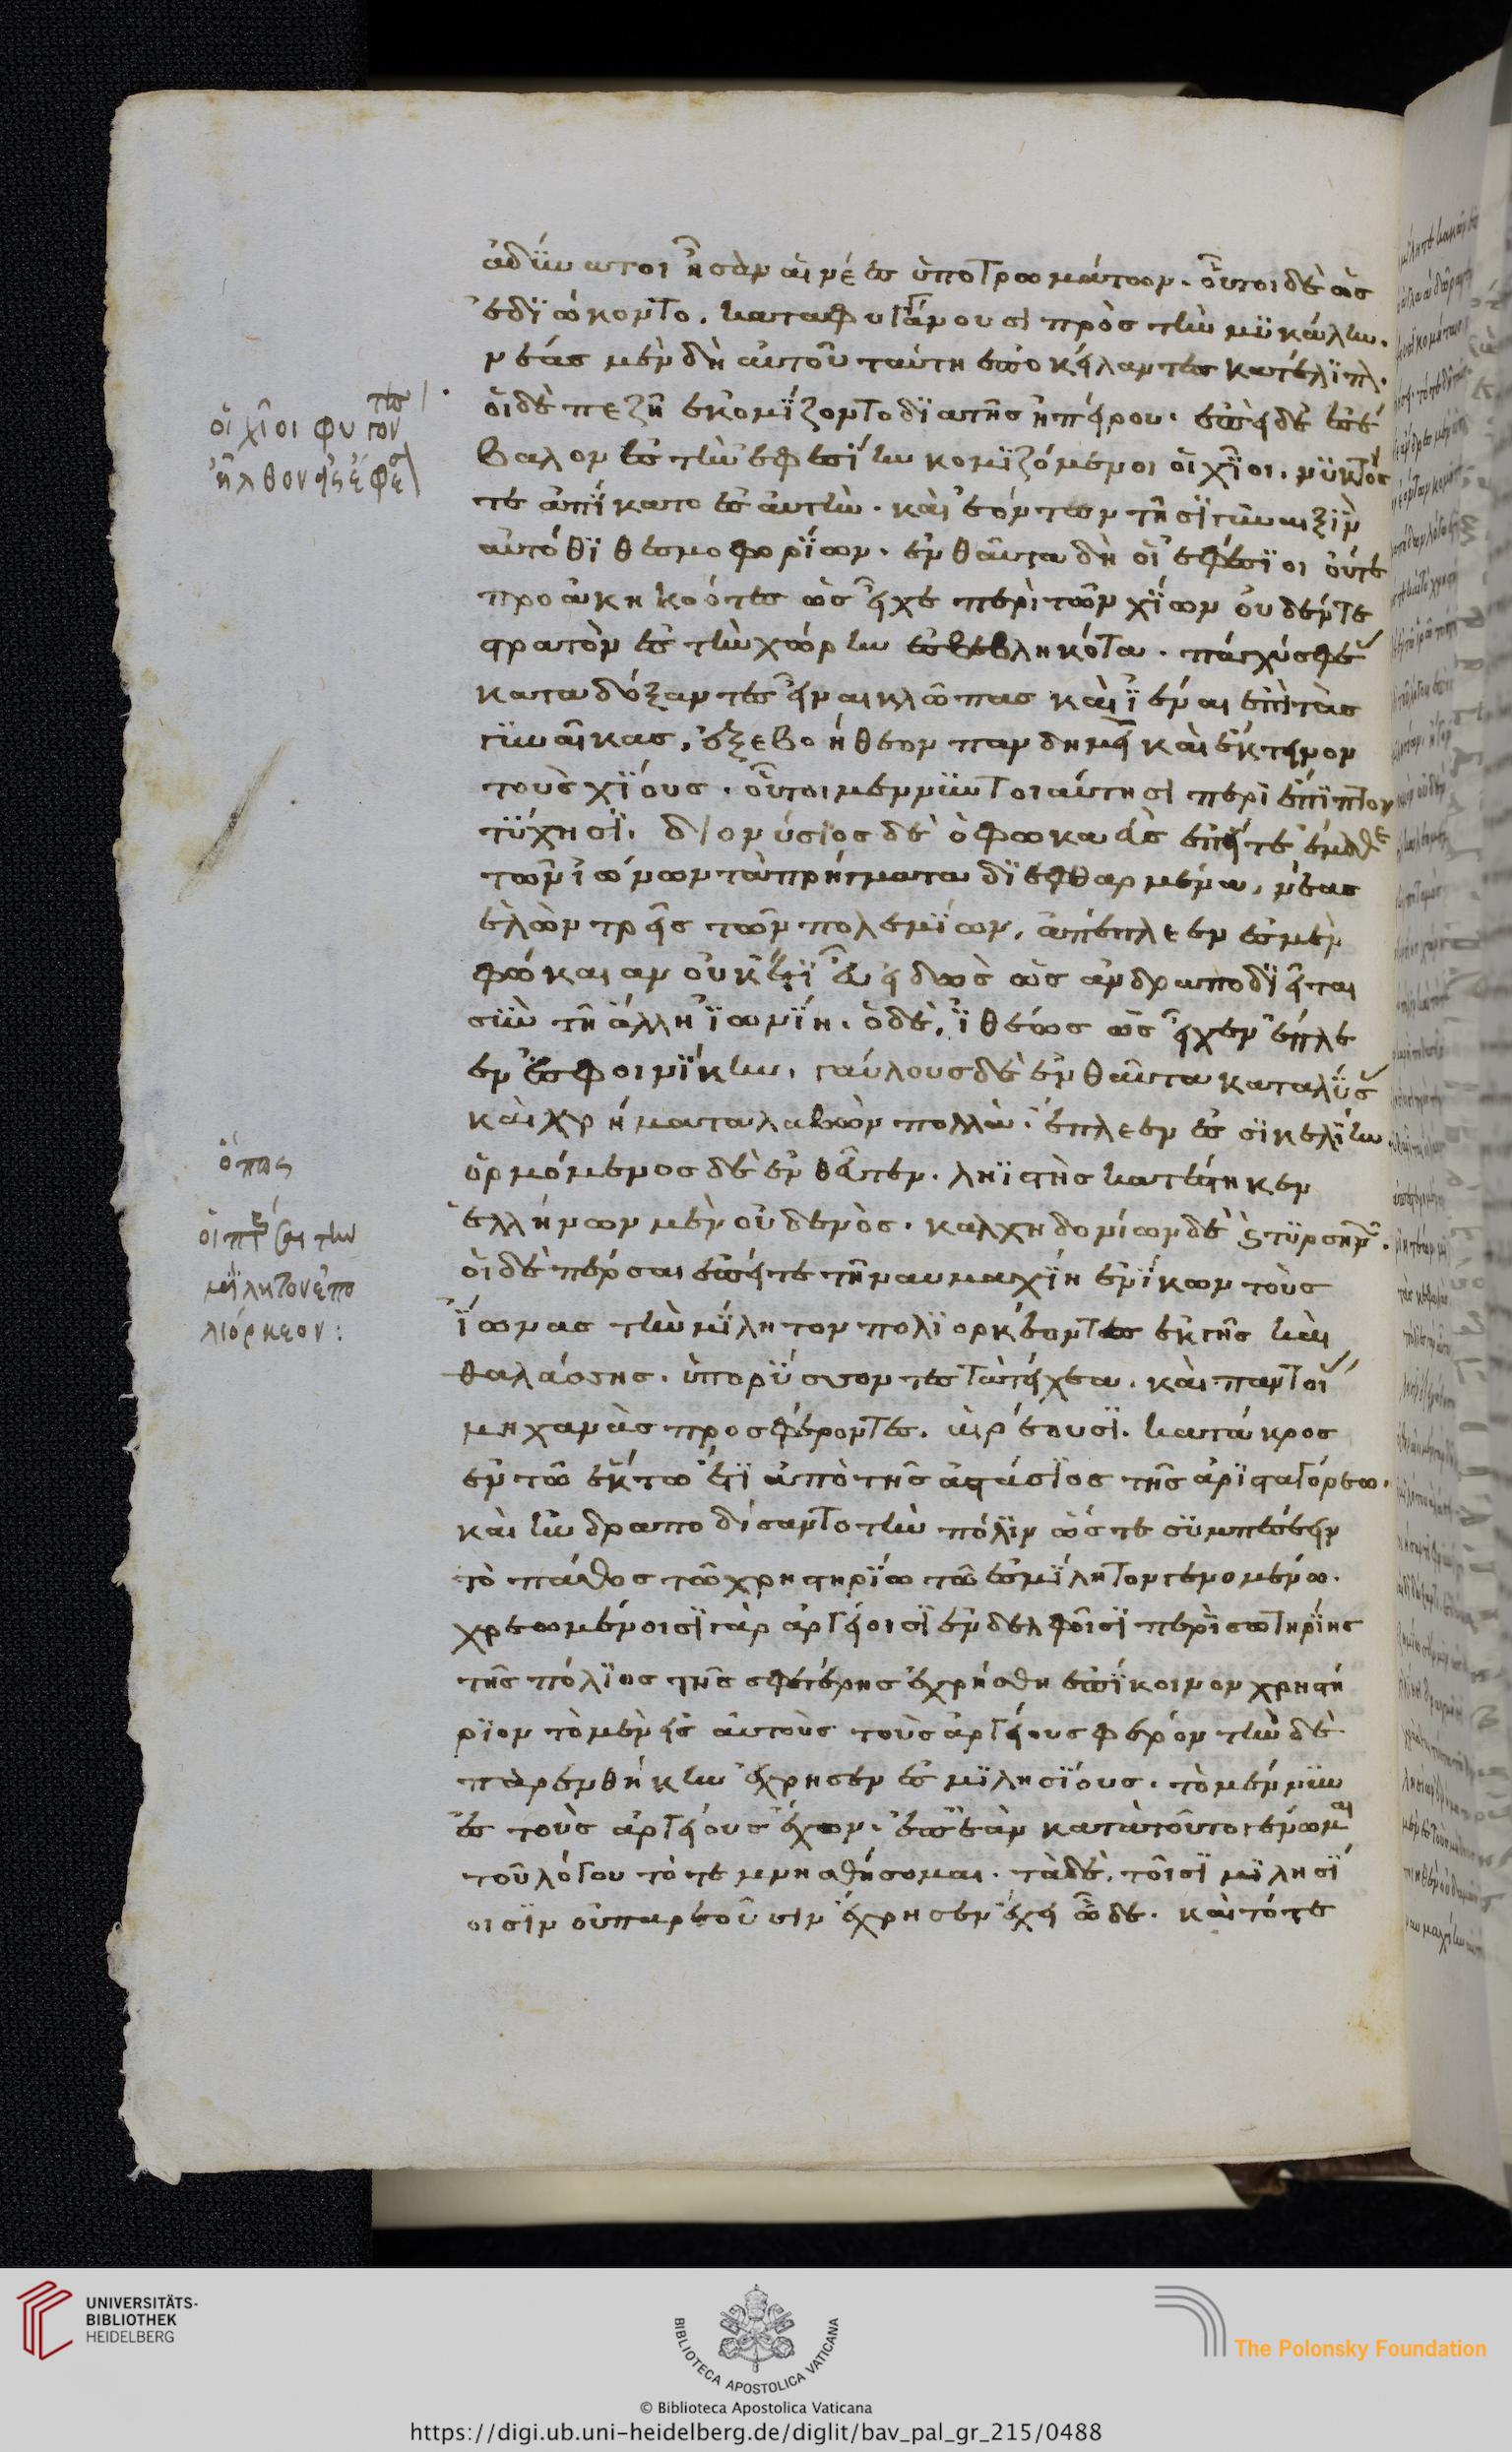 ἀδύνατοι ἦσαν αἱ νέες ὑπὸ τρωμάτων. οὗτοι δὲ ὡς
ἐδιώκοντο. καταφυγγάνουσι πρὸς τὴν μυκάλην.
νέας μὲν δὴ αὐτοῦ ταύτη ἐποκείλαντες κατέλιπον.
οἱ δὲ πεζῆ ἐκομίζοντο διὰ τῆς ἠπείρου. ἐπεὶ δὲ ἐσέ
βαλον ἐς τὴν ἐφεσίην κομιζόμενοι οἱ χῖοι. νυκτός
τε ἀπίκατο ἐς αὐτὴν. καὶ ἐόντων τῆσι γυναιξὶν
αὐτόθι θεσμοφορίων. ἐνθαῦτα δὴ οἱ ἐφέσιοι οὔτε
προακηκοότες ὡς εἶχε περὶ τῶν χίων οὐδέν τε
στρατὸν ἐς τὴν χώρην ἐσβεβληκότα. πάγχυ σφέ
καταδόξαντες εἶναι κλῶπας καὶ ἰέναι ἐπὶ τὰς
γυναῖκας. ἐξεβοήθεον πανδημεὶ καὶ ἔκτεινον
τοὺς χίους. οὗτοι μέν νυν τοιαύτησι περιέπιπτον
τύχησι. διονύσιος δὲ ὁ φωκαεὺς ἐπείτε ἔμαθε
τῶν ἰώνων τὰ πρήγματα διεφθαρμένα, νέας
ἑλὼν τρεῖς τῶν πολεμίων, ἀπέπλεεν ἐς μὲν
φώκαιαν οὐκέτι εὖ εἰδὼς ὡς ἀνδραποδιεῖται
σὺν τῆ ἄλλη ἰωνίη. ὁ δὲ, ἰθέως ὡς εἶχεν ἔπλε
εν ἐς φοινίκην. γαύλους δὲ ἐνθαῦτα καταδύσ
καὶ χρήματα λαβὼν πολλὰ. ἔπλεεν ἐς σικελίην.
ὁρμόμενος δὲ ἐνθεῦτεν. ληιστὴς κατεστήκεν
ἑλλήνων μὲν οὐδενὸς. καλχηδονίων δὲ καὶ τυρσηνῶν.
οἱ δὲ πέρσαι ἐπείτε τῆ ναυμαχίη ἐνίκων τοὺς
ἴωνας τὴν μίλητον πολιορκέοντες ἐκ γῆς καὶ
θαλάσσης. ὑπορύσσοντες τὰ τείχεα. καὶ παντοί
μηχανὰς προσφέροντες. αἱρέουσι. κατάκρος
ἐν τῶ ἕκτω ἔτι ἀπὸ τῆς ἀστάσιος τῆς ἀρισταγόρεω.
καὶ ἠνδραποδίσαντο τὴν πόλιν ὥστε συμπεσέειν
τὸ πάθος τῶ χρηστηρίω τῶ ἐς μίλητον γενομένω.
χρεωμένοισι γὰρ ἀργείοισι ἐν δελφοῖσι περὶ σωτηρίης
τῆς πόλιος τῆς σφετέρης ἐχρήσθη ἐπίκοινον χρηστή
ριον τὸ μὲν εἰς αὐτοὺς τοὺς ἀργείους φέρον τὴν δὲ
παρενθήκην ἔχρησεν ἐς μιλησίους. τὸ μέν νυν
ἐς τοὺς ἀργείους ἔχον. ἐπεὰν κατὰ τοῦτο γένωμαι
τοῦ λόγου τότε μνησθήσομαι. τὰ δέ, τοῖσι μιλησί
οισιν οὐ παρεοῦσιν ἔχρησεν ἔχει ὧδε. καὶ τότε
οἱ χῖοι φυγόν
τες
ἦλθον εἰς ἔφε
ὅπως
οἱ πέρσαι τὴν
μίλητον ἐπο
λιόρκεον:
UNIVERSITÄTS-
BIBLIOTHEK
HEIDELBERG
BIBLIOTECA APOSTOLICA VATICANA
The Polonsky Foundation
© Biblioteca Apostolica Vaticana
https://digi.ub.uni-heidelberg.de/diglit/bav_pal_gr_215/0488